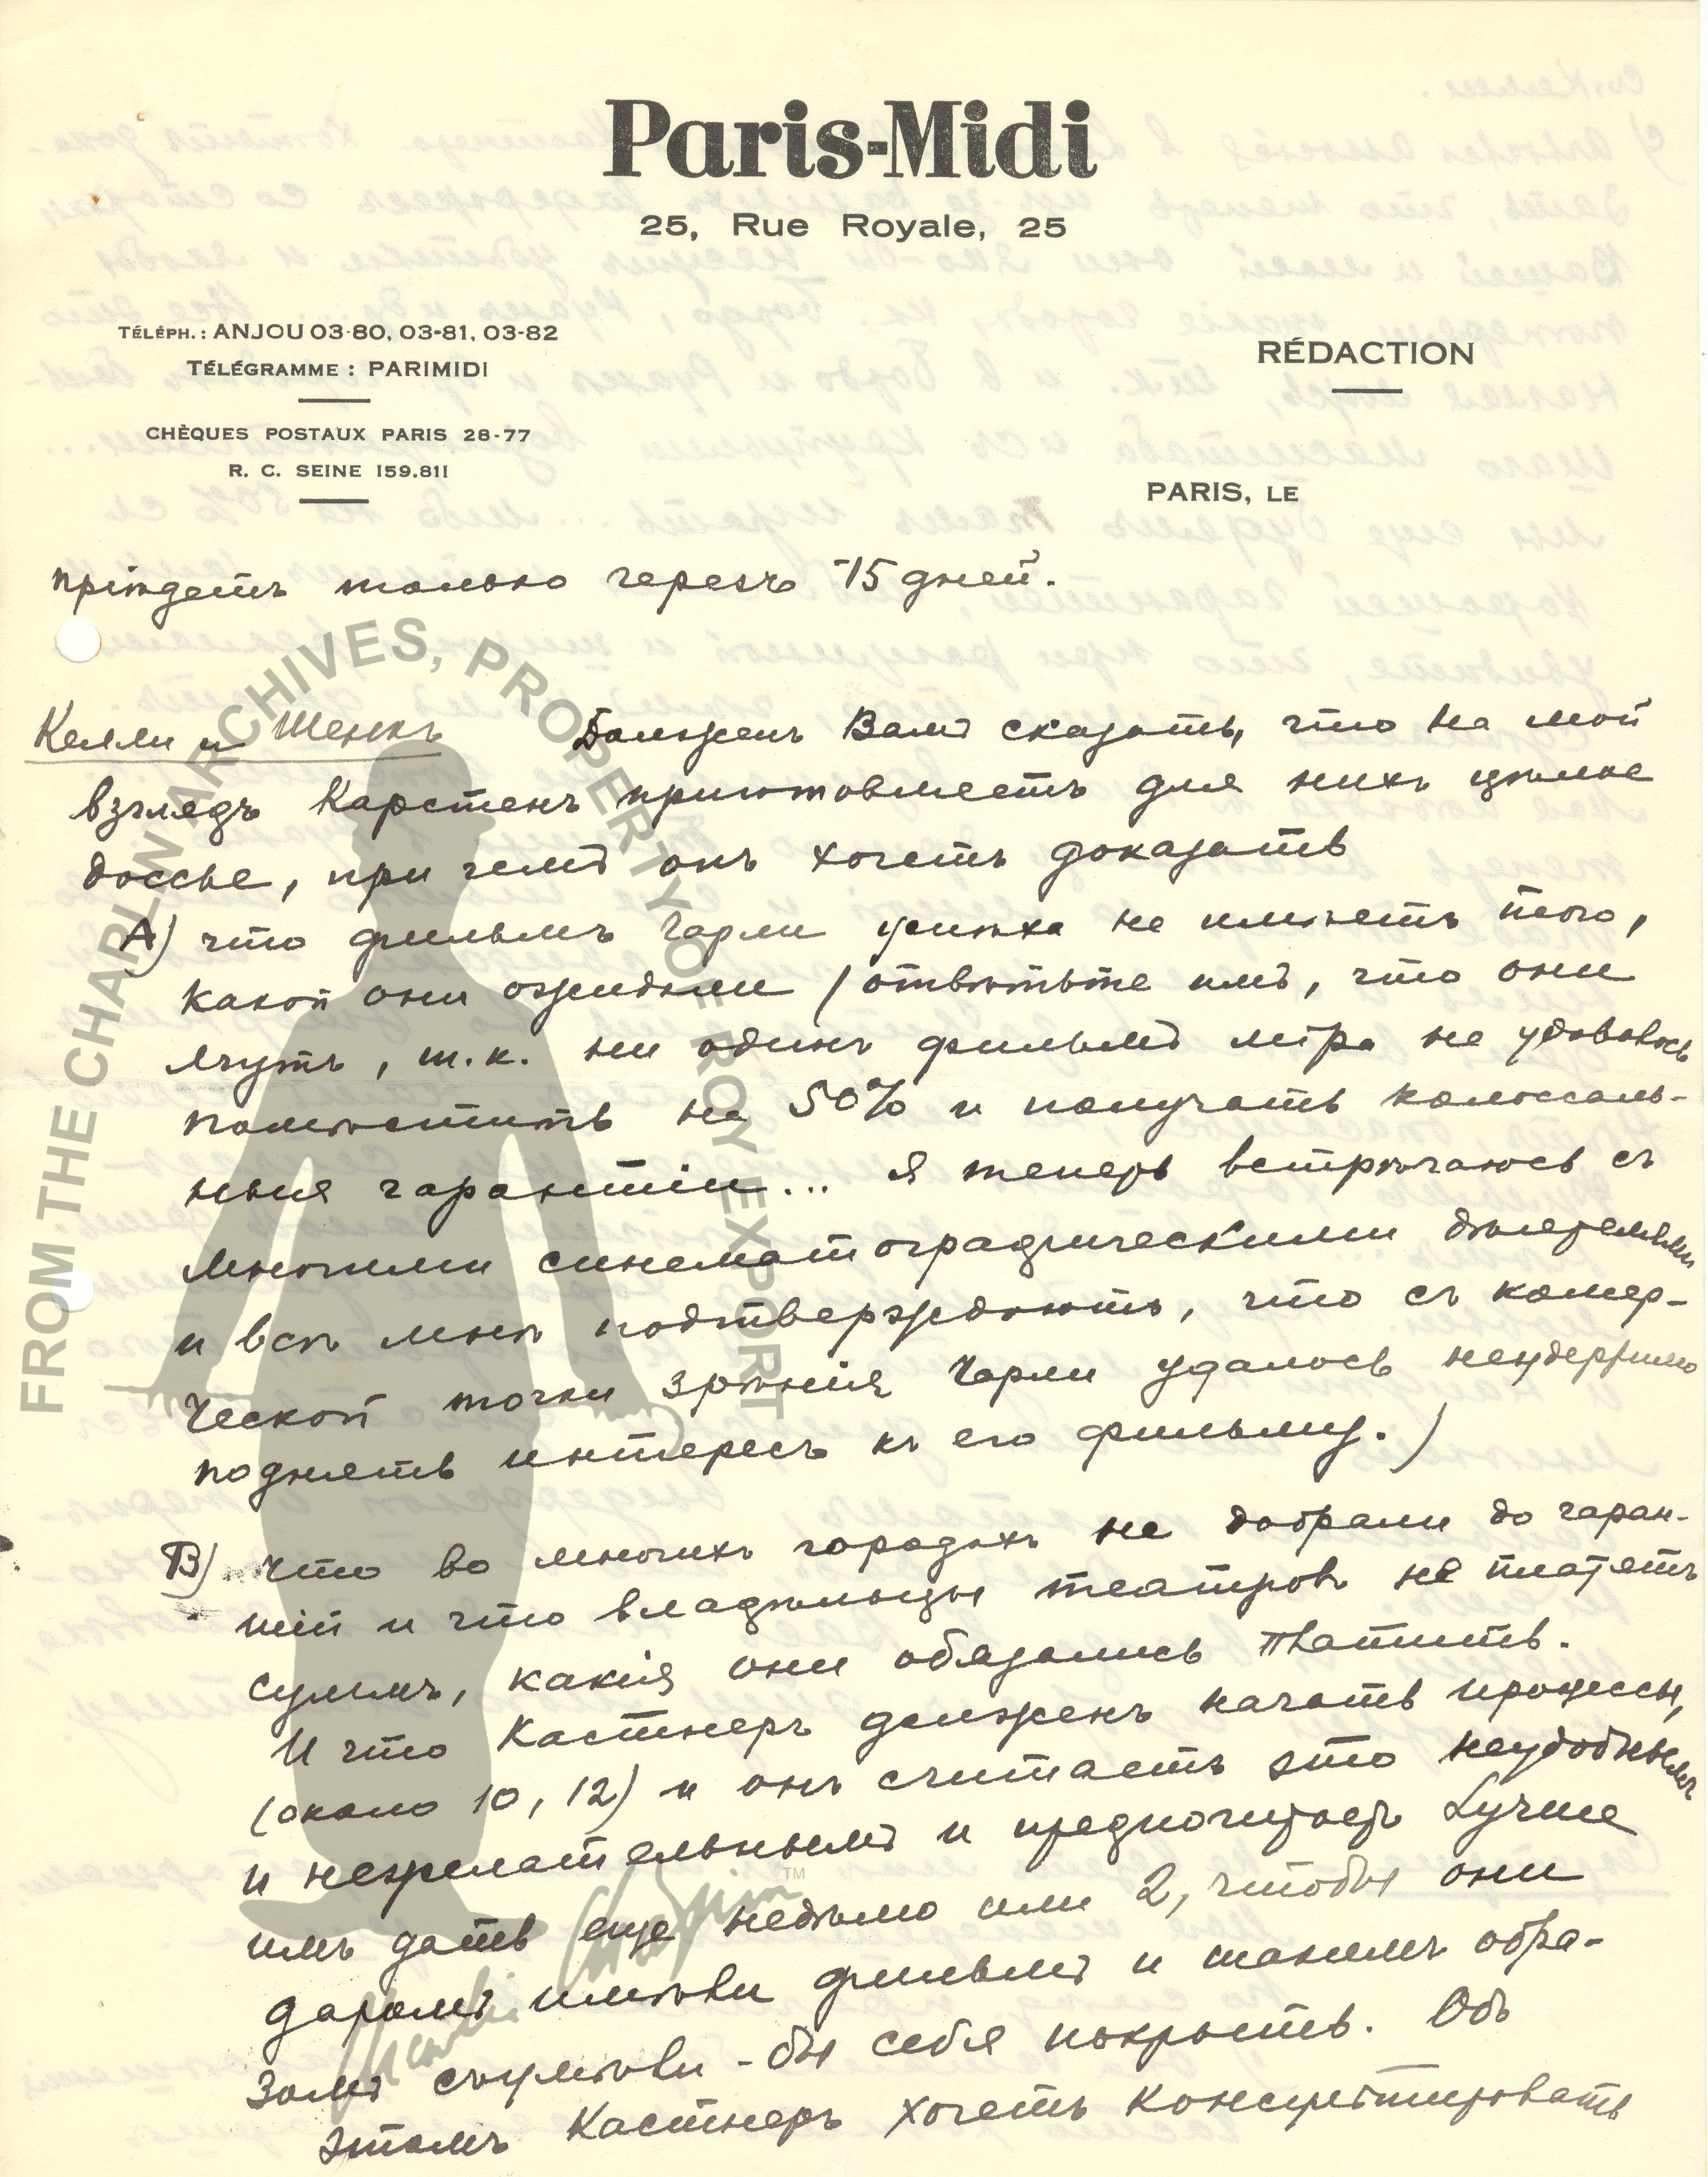 Paris-Midi
25, Rue Royale, 25
TÉLÉPH.: ANJOU 03-80, 03-81, 03-82
TÉLÉGRAMME : PARIMIDI
CHÈQUES POSTAUX PARIS 28-77
R. C. SEINE 159.811
RÉDACTION
PARIS, LE
пріѣдетъ только черезъ 15 дней.
Келли и Шенкъ Долженъ Вамъ сказать, что на мой
взглядъ Карстенъ приготовляетъ для нихъ цѣлое
доссье, при чемъ онъ хочетъ доказать
A) что фильмъ Чарли успѣха не имѣетъ того,
какой они ожидали (отвѣтьте имъ, что они
лгутъ, т.к. ни одинъ фильмъ міра не удавалось
помѣстить на 50% и получать колоссаль-
ныя гарантіи... Я теперь встрѣчаюсь съ
многими синематографическими дѣятелями
и всѣ мнѣ подтверждаютъ, что съ коммер-
ческой точки зрѣнія Чарли удалось неудержимо
поднять интересъ къ его фильму.)
B) что во многихъ городахъ не добрали до гаран-
тій и что владѣльцы театровъ не платятъ
суммъ, какія они обязались платить.
И что Кастнеръ долженъ начать процессы,
(около 10, 12) и онъ считаетъ это неудобнымъ
и нежелательнымъ и предпочитаетъ лучше
имъ дать еще недѣлю или 2, чтобы они
даромъ имѣли фильмъ и такимъ обра-
зомъ сумѣли-бы себя покрыть. Объ
этомъ Кастнеръ хочетъ консультировать
FROM THE CHARLIN ARCHIVES, PROPERTY OF ROY EXPORT
Charlie Chaplin™